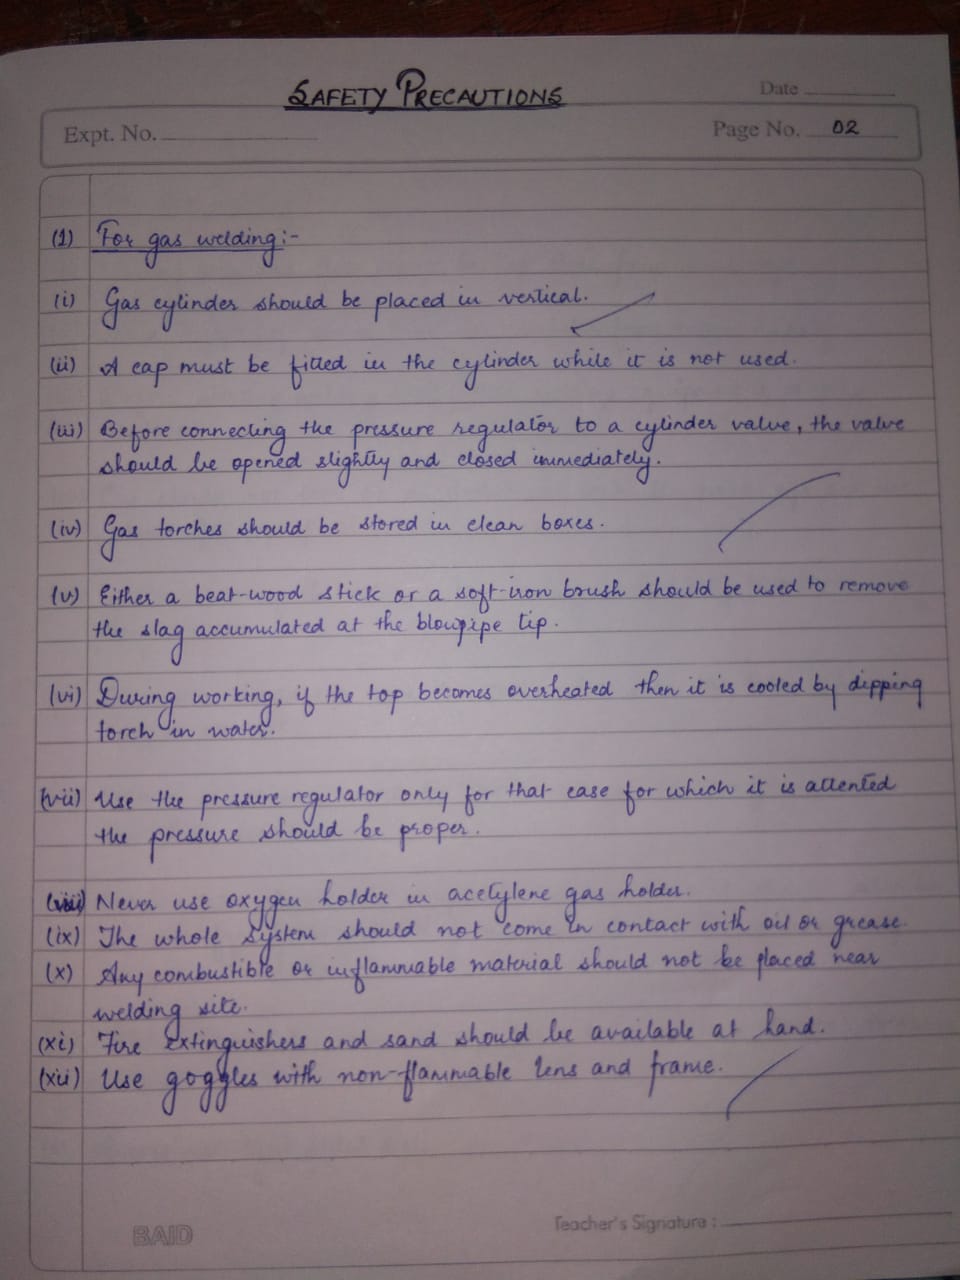 SAFETY PRECAUTIONS
Date
Expt. No.
Page No. 02
(1) For gas welding:-
(i) Gas cylinder should be placed in vertical.
(ii) A cap must be fitted in the cylinder while it is not used.
(iii) Before connecting the pressure regulator to a cylinder valve, the valve
should be opened slightly and closed immediately.
(iv) Gas torches should be stored in clean boxes.
(v) Either a beat-wood stick or a soft-iron brush should be used to remove
the slag accumulated at the blowpipe tip.
(vi) During working, if the top becomes overheated then it is cooled by dipping
torch in water.
(vii) Use the pressure regulator only for that case for which it is attented
the pressure should be proper.
(viii) Never use oxygen holder in acetylene gas holder.
(ix) The whole system should not come in contact with oil or grease.
(x) Any combustible or inflammable material should not be placed near
welding site.
(xi) Fire extinguishers and sand should be available at hand.
(xii) Use goggles with non-flammable lens and frame.
BAID
Teacher's Signature :